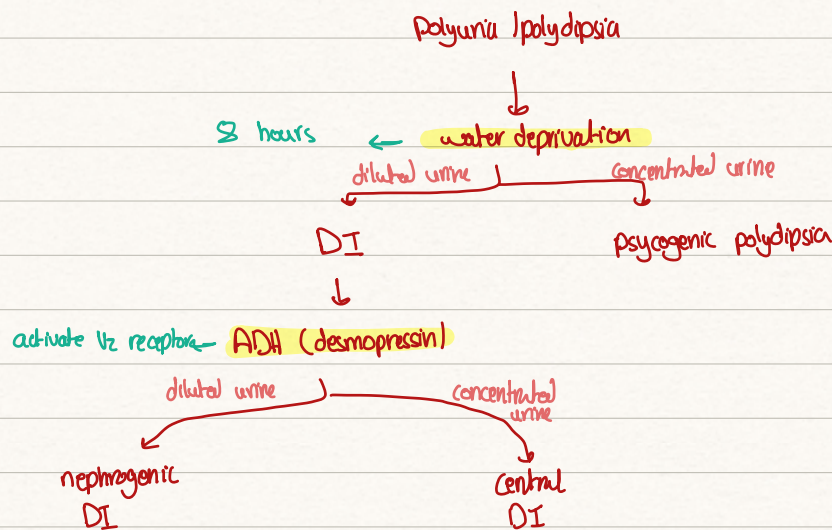 polyuria / polydipsia
8 hours ← water deprivation
diluted urine concentrated urine
DI psycogenic polydipsia
activate V2 receptors ← ADH (desmopressin)
diluted urine concentrated
urine
nephrogenic central
DI DI